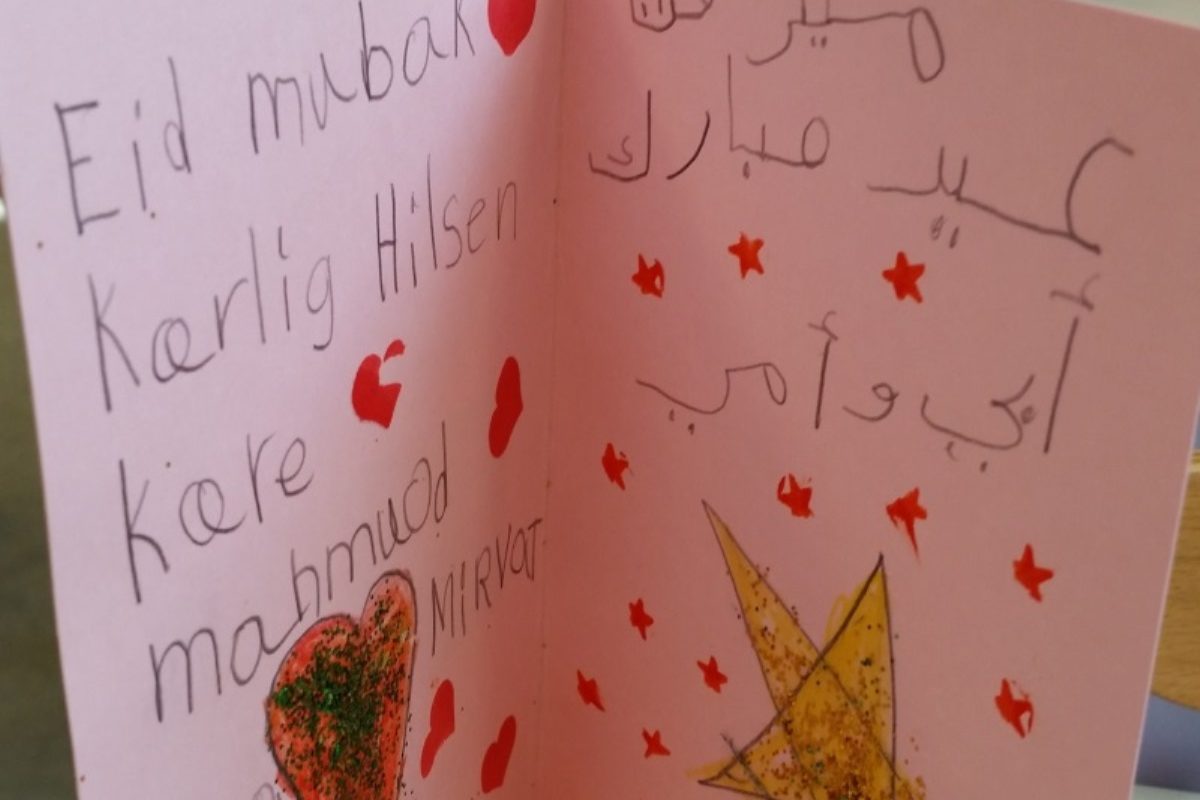 Eid mubak
Kærlig Hilsen
kære
mahmuod
MiRVAT
عيد مبارك
أبي وأمي